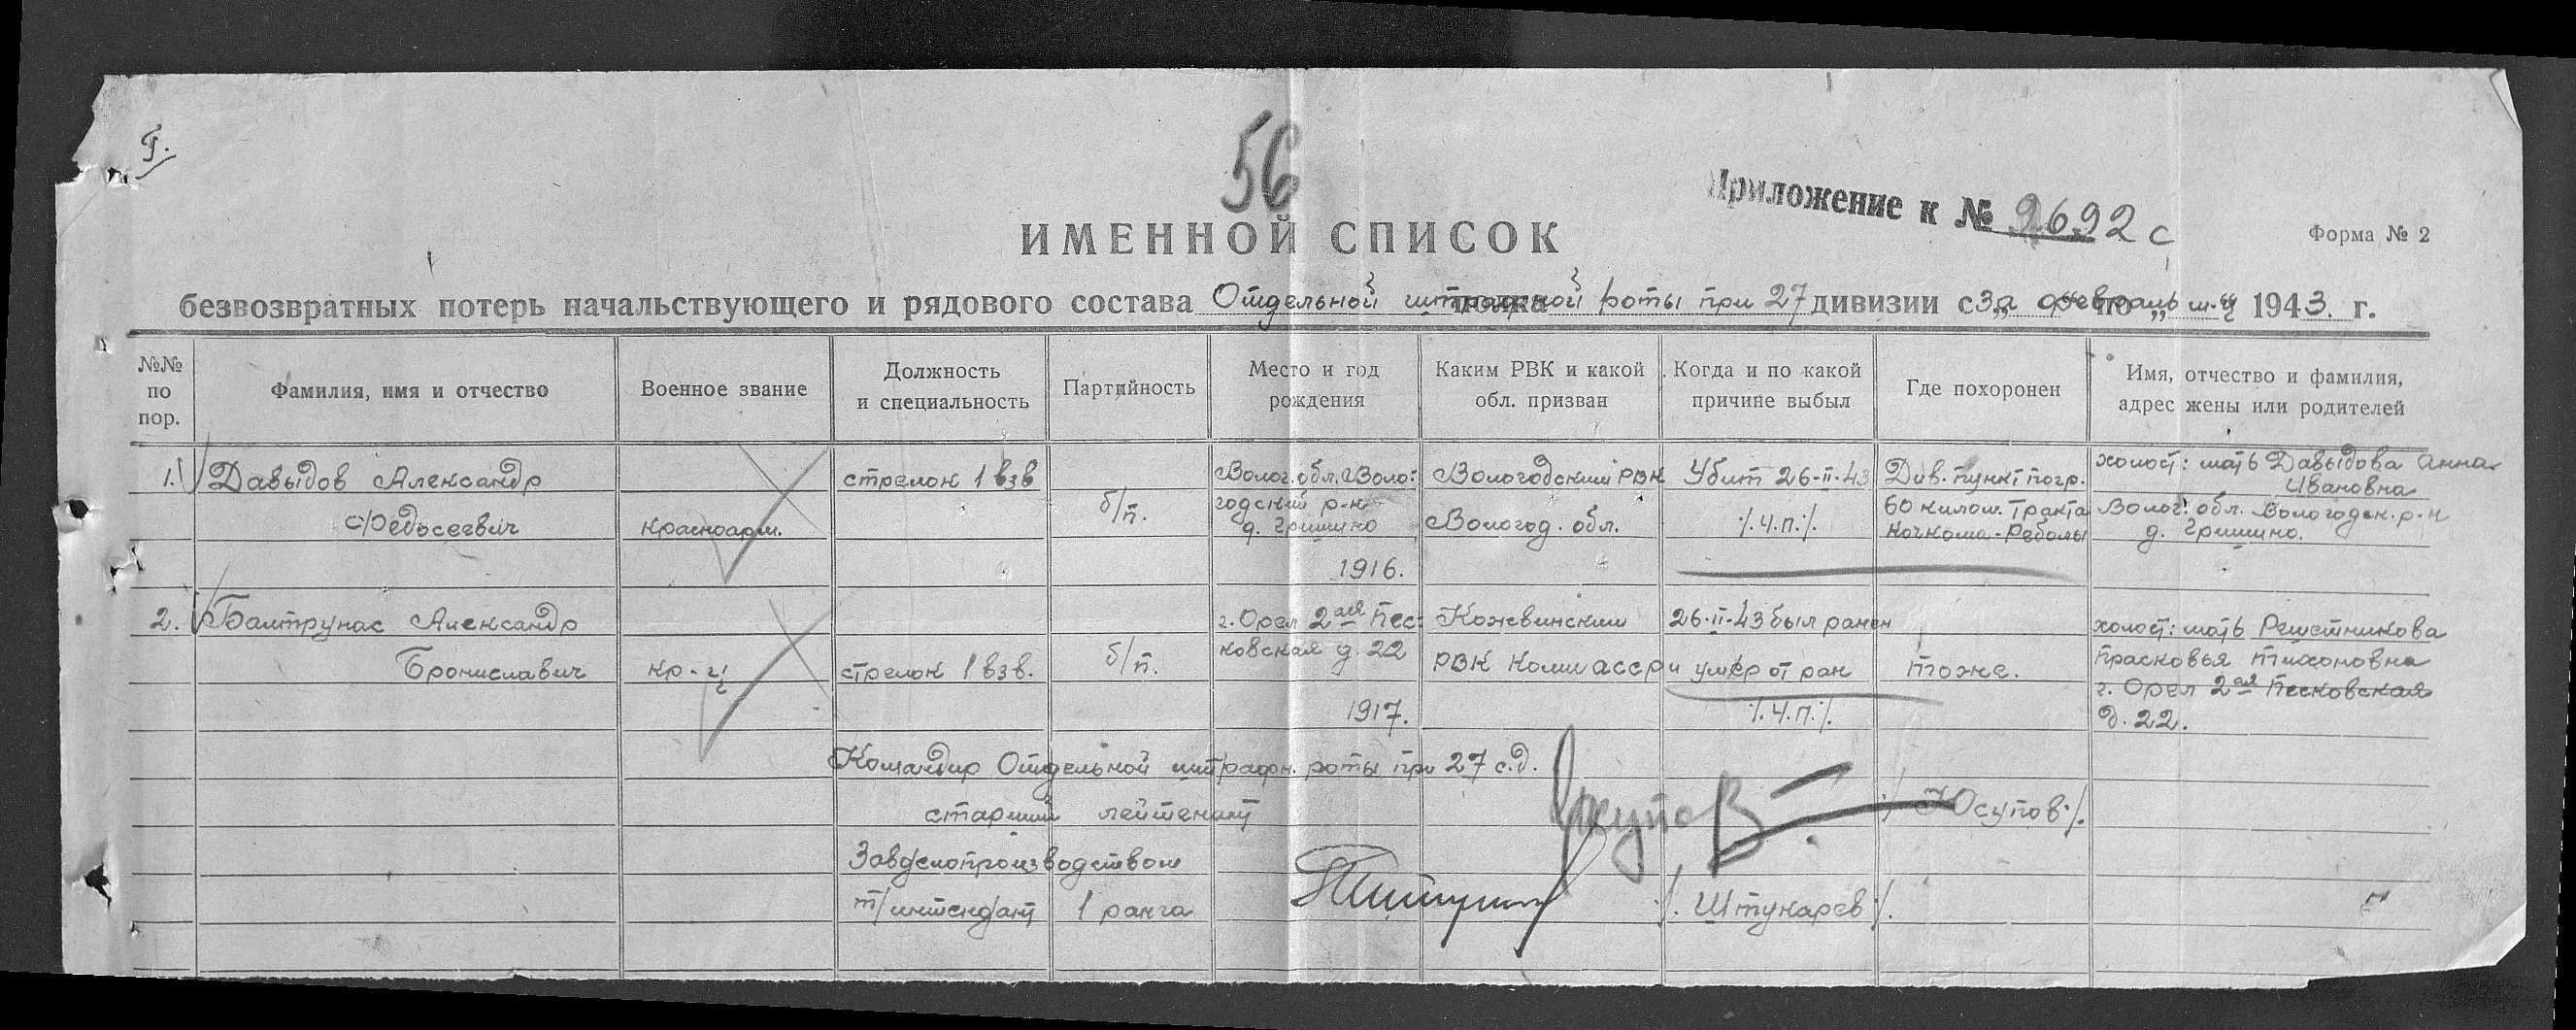 56
Приложение к № 9692 с
ИМЕННОЙ СПИСОК
Форма № 2
безвозвратных потерь начальствующего и рядового состава Отдельной штрафной роты при 27 дивизии с за февраль м-ц 1943. г.
№№ по пор.
Фамилия, имя и отчество
Военное звание
Должность и специальность
Партийность
Место и год рождения
Каким РВК и какой обл. призван
Когда и по какой причине выбыл
Где похоронен
Имя, отчество и фамилия, адрес жены или родителей
1. Давыдов Александр
Федосеевич
красноарм.
стрелок 1 взв
б/п.
Волог. обл. Воло-
годский р-н
д. Гришино
1916.
Вологодский РВК
Вологод. обл.
Убит 26-II-43
/.Ч.П./.
Див. пункт погр.
60 килом. тракта
Кочкома-Реболы
холост: мать Давыдова Анна
Ивановна
Волог. обл. Вологодск. р-н
д. Гришино.
2. Балтрунас Александр
Брониславич
кр-ц
стрелок 1 взв.
б/п.
г. Орел 2ая Пес-
ковская д. 22
1917.
Кожвинским
РВК Коми АССР
26-II-43 был ранен
и умер от ран
/.Ч.П./.
тоже.
холост: мать Решетникова
Прасковья Тихоновна
г. Орел 2ая Песковская
д. 22.
Командир Отдельной штрафн. роты при 27 с.д.
старший лейтенант
Юсупов
/.Юсупов./
Завделопроизводством
т/интендант 1 ранга
/. Штукарев /.